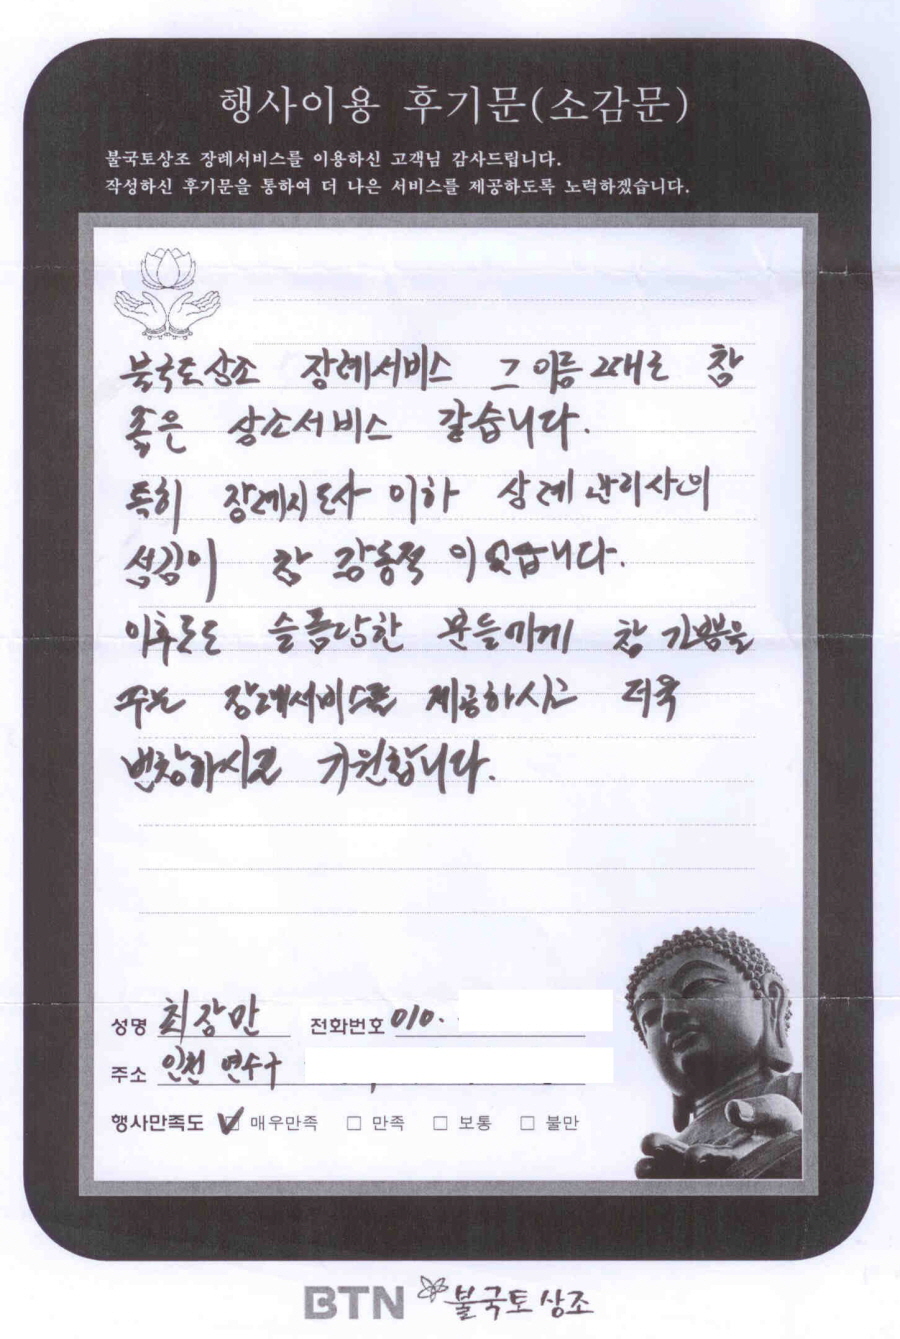 행사이용 후기문(소감문)
불국토상조 장례서비스를 이용하신 고객님 감사드립니다.
작성하신 후기문을 통하여 더 나은 서비스를 제공하도록 노력하겠습니다.
불국토상조 장례서비스 그 이름 그대로 참
좋은 상조서비스 같습니다.
특히 장례지도사 이하 상례관리사의
섬김이 참 감동적 이었습니다.
이후로도 슬픔당한 분들에게 참 기쁨을
주는 장례서비스를 제공하시고 더욱
번창하시길 기원합니다.
성명 최장만 전화번호 010.
주소 인천 연수구
행사만족도 ☑ 매우만족 □ 만족 □ 보통 □ 불만
BTN 불국토 상조